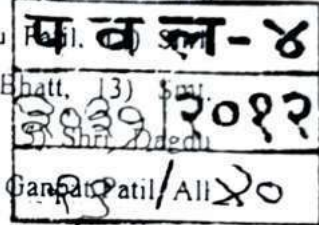 Patil, Shri
प व ल-४
Bhatt, 13) Smt.
२०१२
Shri. Dagdu
Ganpat Patil All